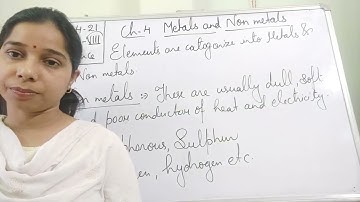 4-21 Ch-4 Metals and Non metals
VIII
Elements are categorize into Metals &
Non metals.
metals :- These are usually dull, soft
poor conductor of heat and electricity.
Sulphur
hydrogen etc.